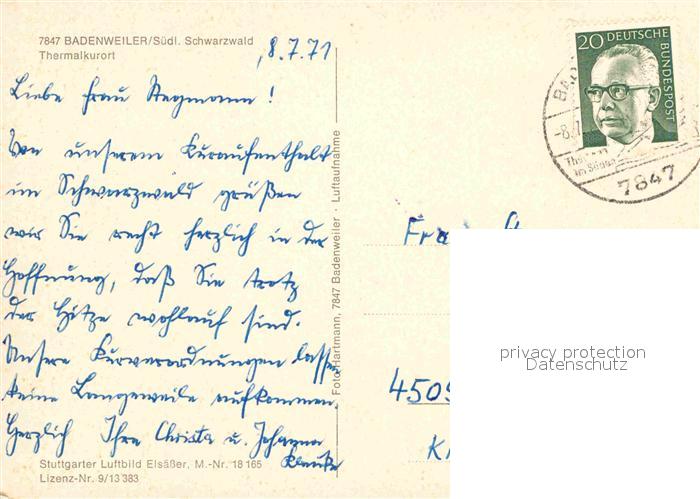 7847 BADENWEILER/Südl. Schwarzwald
Thermalkurort
8.7.71
Liebe Frau Stegmann!
Von unserem Kuraufenthalt
im Schwarzwald grüßen
wir Sie recht herzlich in der
Hoffnung, daß Sie trotz
der Hitze wohlauf sind.
Unsere Kurverordnungen lassen
keine Langeweile aufkommen.
Herzlich Ihre Christa u. Johanna
Stuttgarter Luftbild Elsäßer, M.-Nr. 18 165
Lizenz-Nr. 9/13 383
Foto Hartmann, 7847 Badenweiler - Luftaufnahme
20 DEUTSCHE
BUNDESPOST
7847
privacy protection
Datenschutz